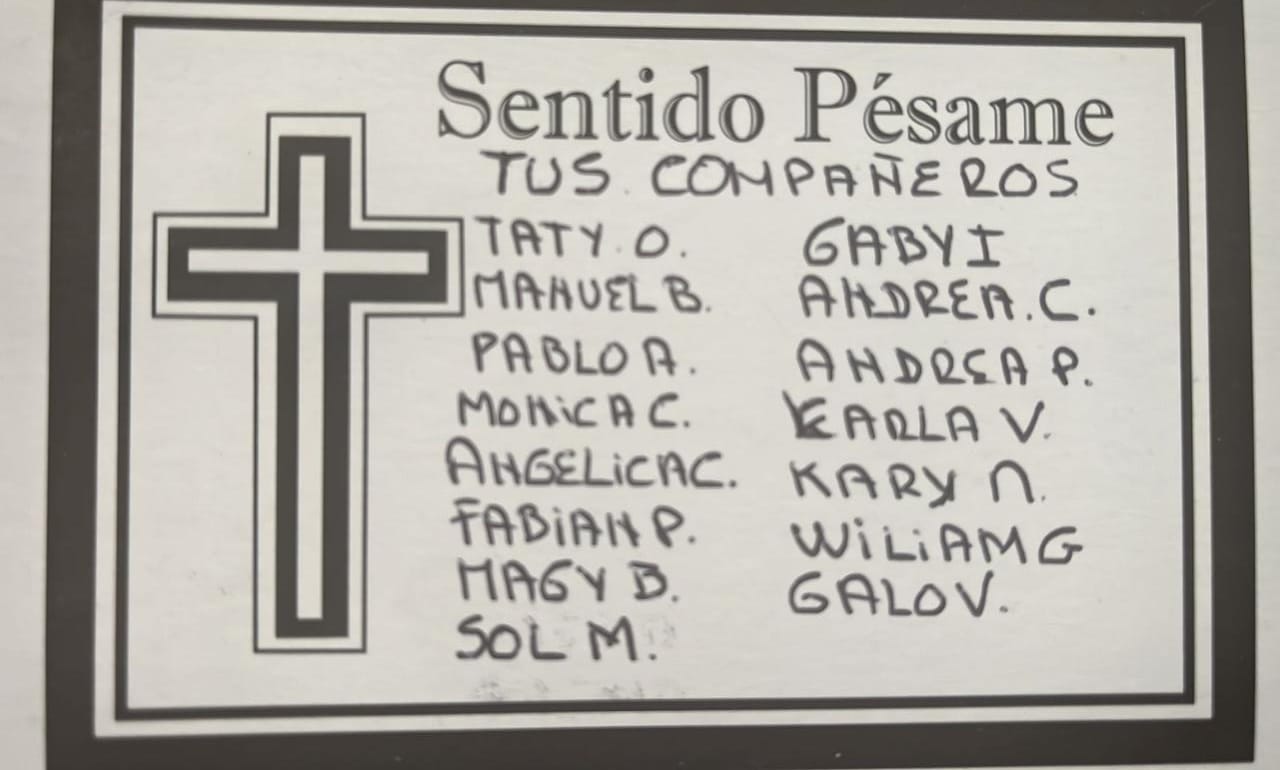 Sentido Pésame
TUS COMPAÑEROS
TATY O.
MANUEL B.
PABLO A.
MONiCA C.
ANGELiCA C.
FABiAN P.
MAGY B.
SOL M.
GABY I
ANDREA. C.
ANDREA P.
KARLA V.
KARY N.
WiLiAM G
GALO V.